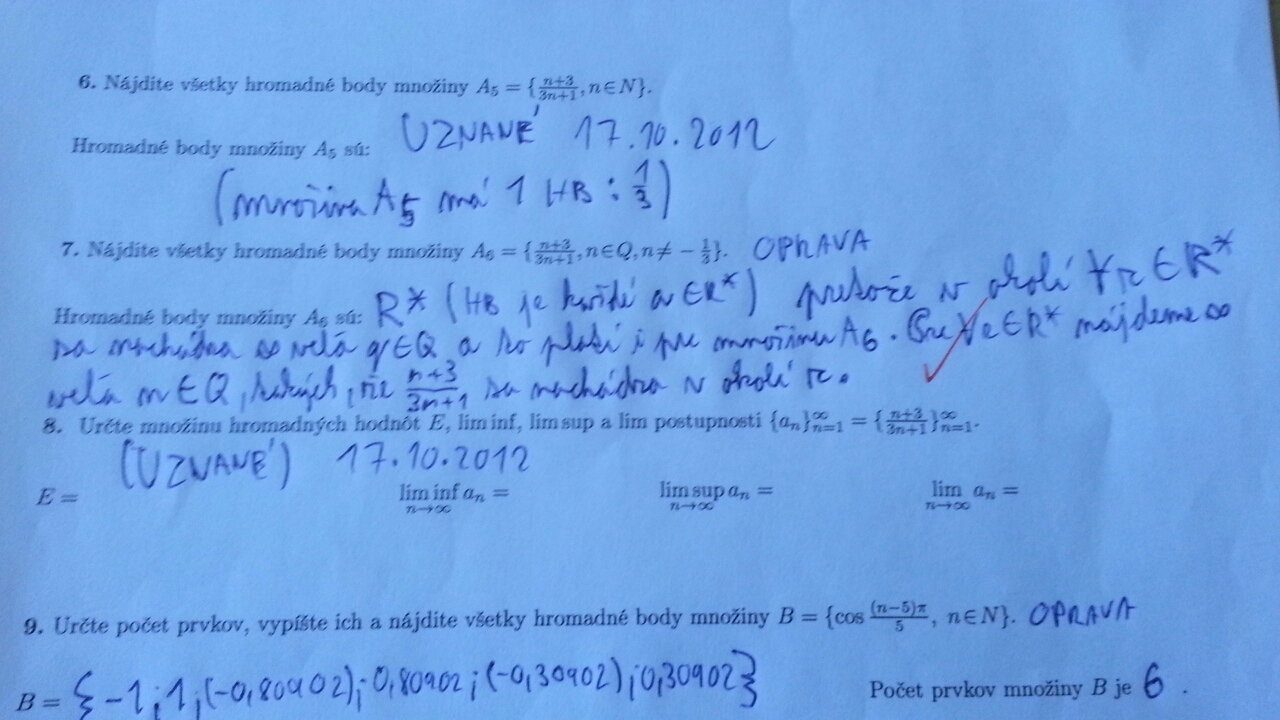 6. Nájdite všetky hromadné body množiny A₅ = {n+3/3n+1, n∈N}.
Hromadné body množiny A₅ sú: UZNANÉ 17.10.2012
(množina A₅ má 1 HB : 1/3)
7. Nájdite všetky hromadné body množiny A₆ = {n+3/3n+1, n∈Q, n≠ −1/3}. OPRAVA
Hromadné body množiny A₆ sú: R* (HB je každé a ∈R*) pretože v okolí ∀r ∈ R*
sa nachádza ∞ veľa q∈Q a to platí i pre množinu A₆. Pre ∀r∈R* nájdeme ∞
veľa n ∈ Q, takých, že n+3/3n+1 sa nachádza v okolí r.
8. Určte množinu hromadných hodnôt E, lim inf, lim sup a lim postupnosti {aₙ}∞n=1 = {n+3/3n+1}∞n=1.
(UZNANÉ) 17.10.2012
E = lim inf aₙ = n→∞ lim sup aₙ = n→∞ lim aₙ = n→∞
9. Určte počet prvkov, vypíšte ich a nájdite všetky hromadné body množiny B = {cos (n−5)π/5, n∈N}. OPRAVA
B = {-1; 1; (-0,80902); 0,80902; (-0,30902); 0,30902} Počet prvkov množiny B je 6 .